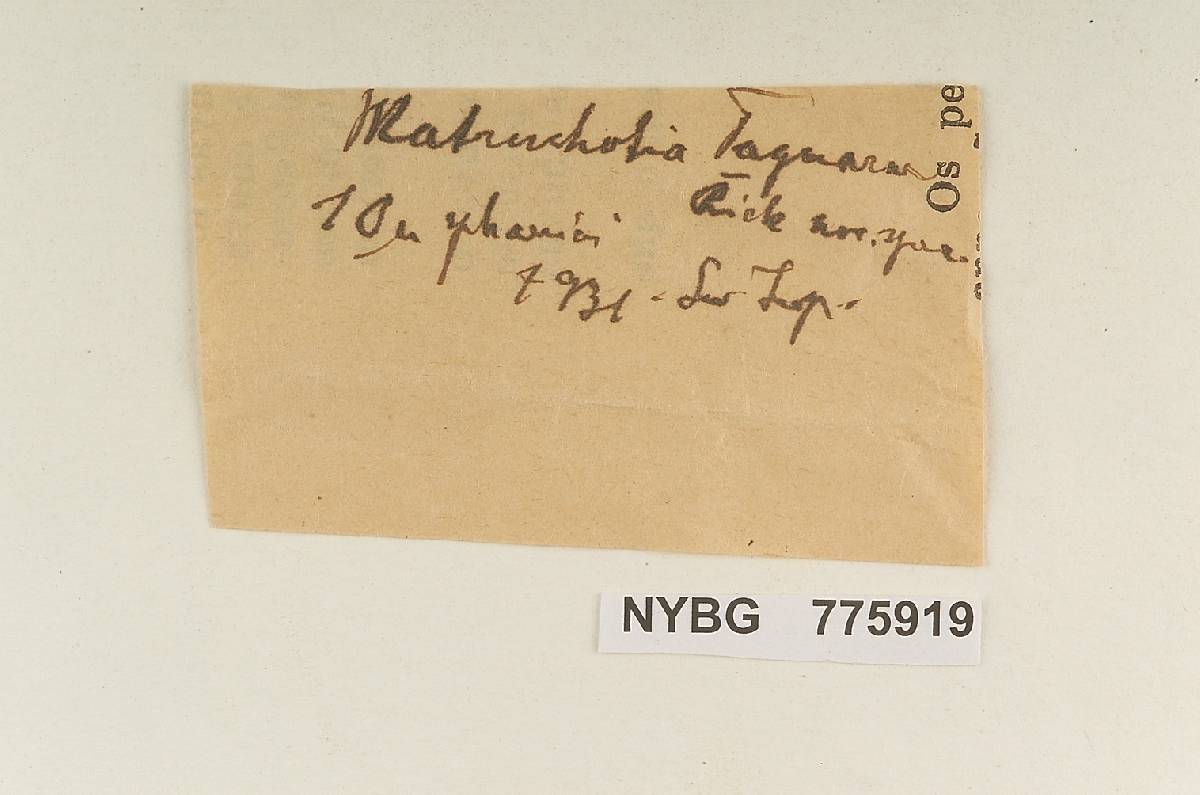 Matruchotia Taquarae
Rick nov. spec.
1931 - Sao Leop.
Os pe
NYBG 775919